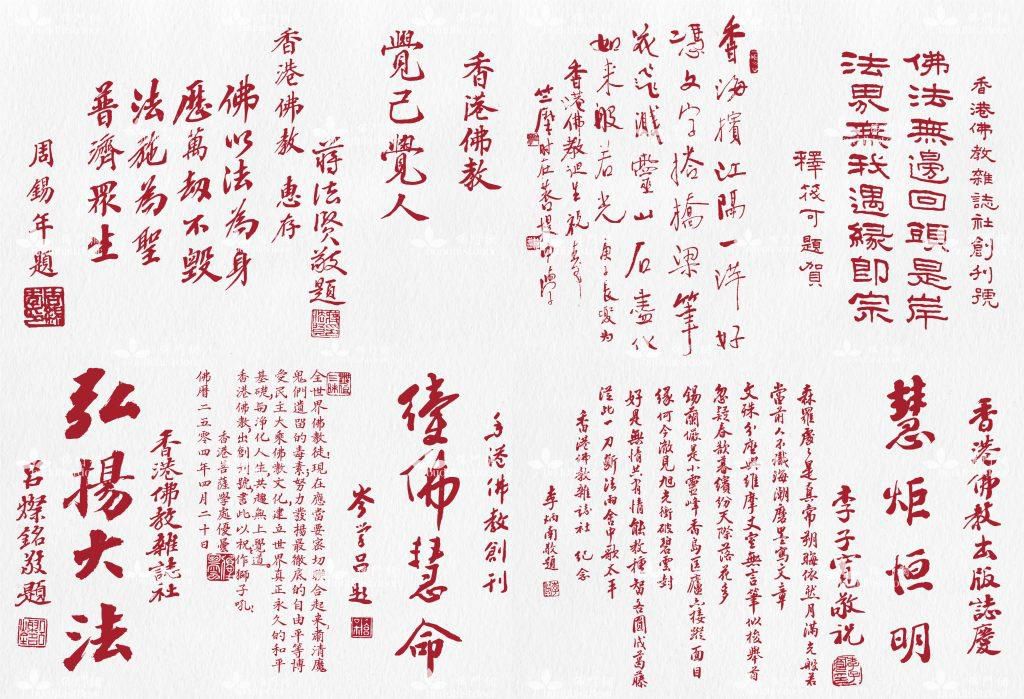 香港佛教雜誌社創刊號
佛法無邊回頭是岸
法界無我遇緣即宗
釋筏可題賀
香海檳江隔一洋好
憑文字搭橋梁筆
花飛濺靈山石盡化
如來般若光 庚子長夏為
香港佛教誕生祝
竺摩時在菩提中學
香港佛教
覺己覺人
蔣法賢敬題
香港佛教 惠存
佛以法為身
歷萬劫不毀
法施為聖
普濟眾生
周錫年題
香港佛教出版誌慶
慧炬恒明
李子寬敬祝
森羅處處是真常朔晦依然月滿光般若
當前人不識海潮磨墨寫文章
文殊分座與維摩丈室無言筆似梭舉首
忽疑春欲暮繽紛天際落花多
錫蘭儼是小靈峰香島匡廬六接蹤面目
緣何今澈見旭光衝破碧雲封
好是無情共有情能教種智各圓成葛藤
從此一刀斷法雨含中歌太平
香港佛教雜誌社 紀念
李炳南敬題
香港佛教創刊
續佛慧命
岑學呂題
全世界佛教徒,現在應當要密切聯合起來,肅清魔
鬼們遺留的毒素,努力發揚最徹底的自由平等博
愛民主大乘佛教文化,建立世界真正永久的和平
基礎,與淨化人生共趣無上覺道.
香港佛教出創刊號書此以祝,作獅子吼.
香港菩薩學處優曇
佛曆二五零四年四月二十日
香港佛教雜誌社
弘揚大法
呂燦銘敬題